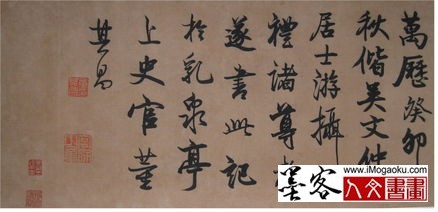 萬歷癸卯
秋偕吳文仲
居士游攝
禮諸尊
遂書此記
於乳泉亭
上史官董
其昌
墨客
人文書畫
www.iMogaoku.com